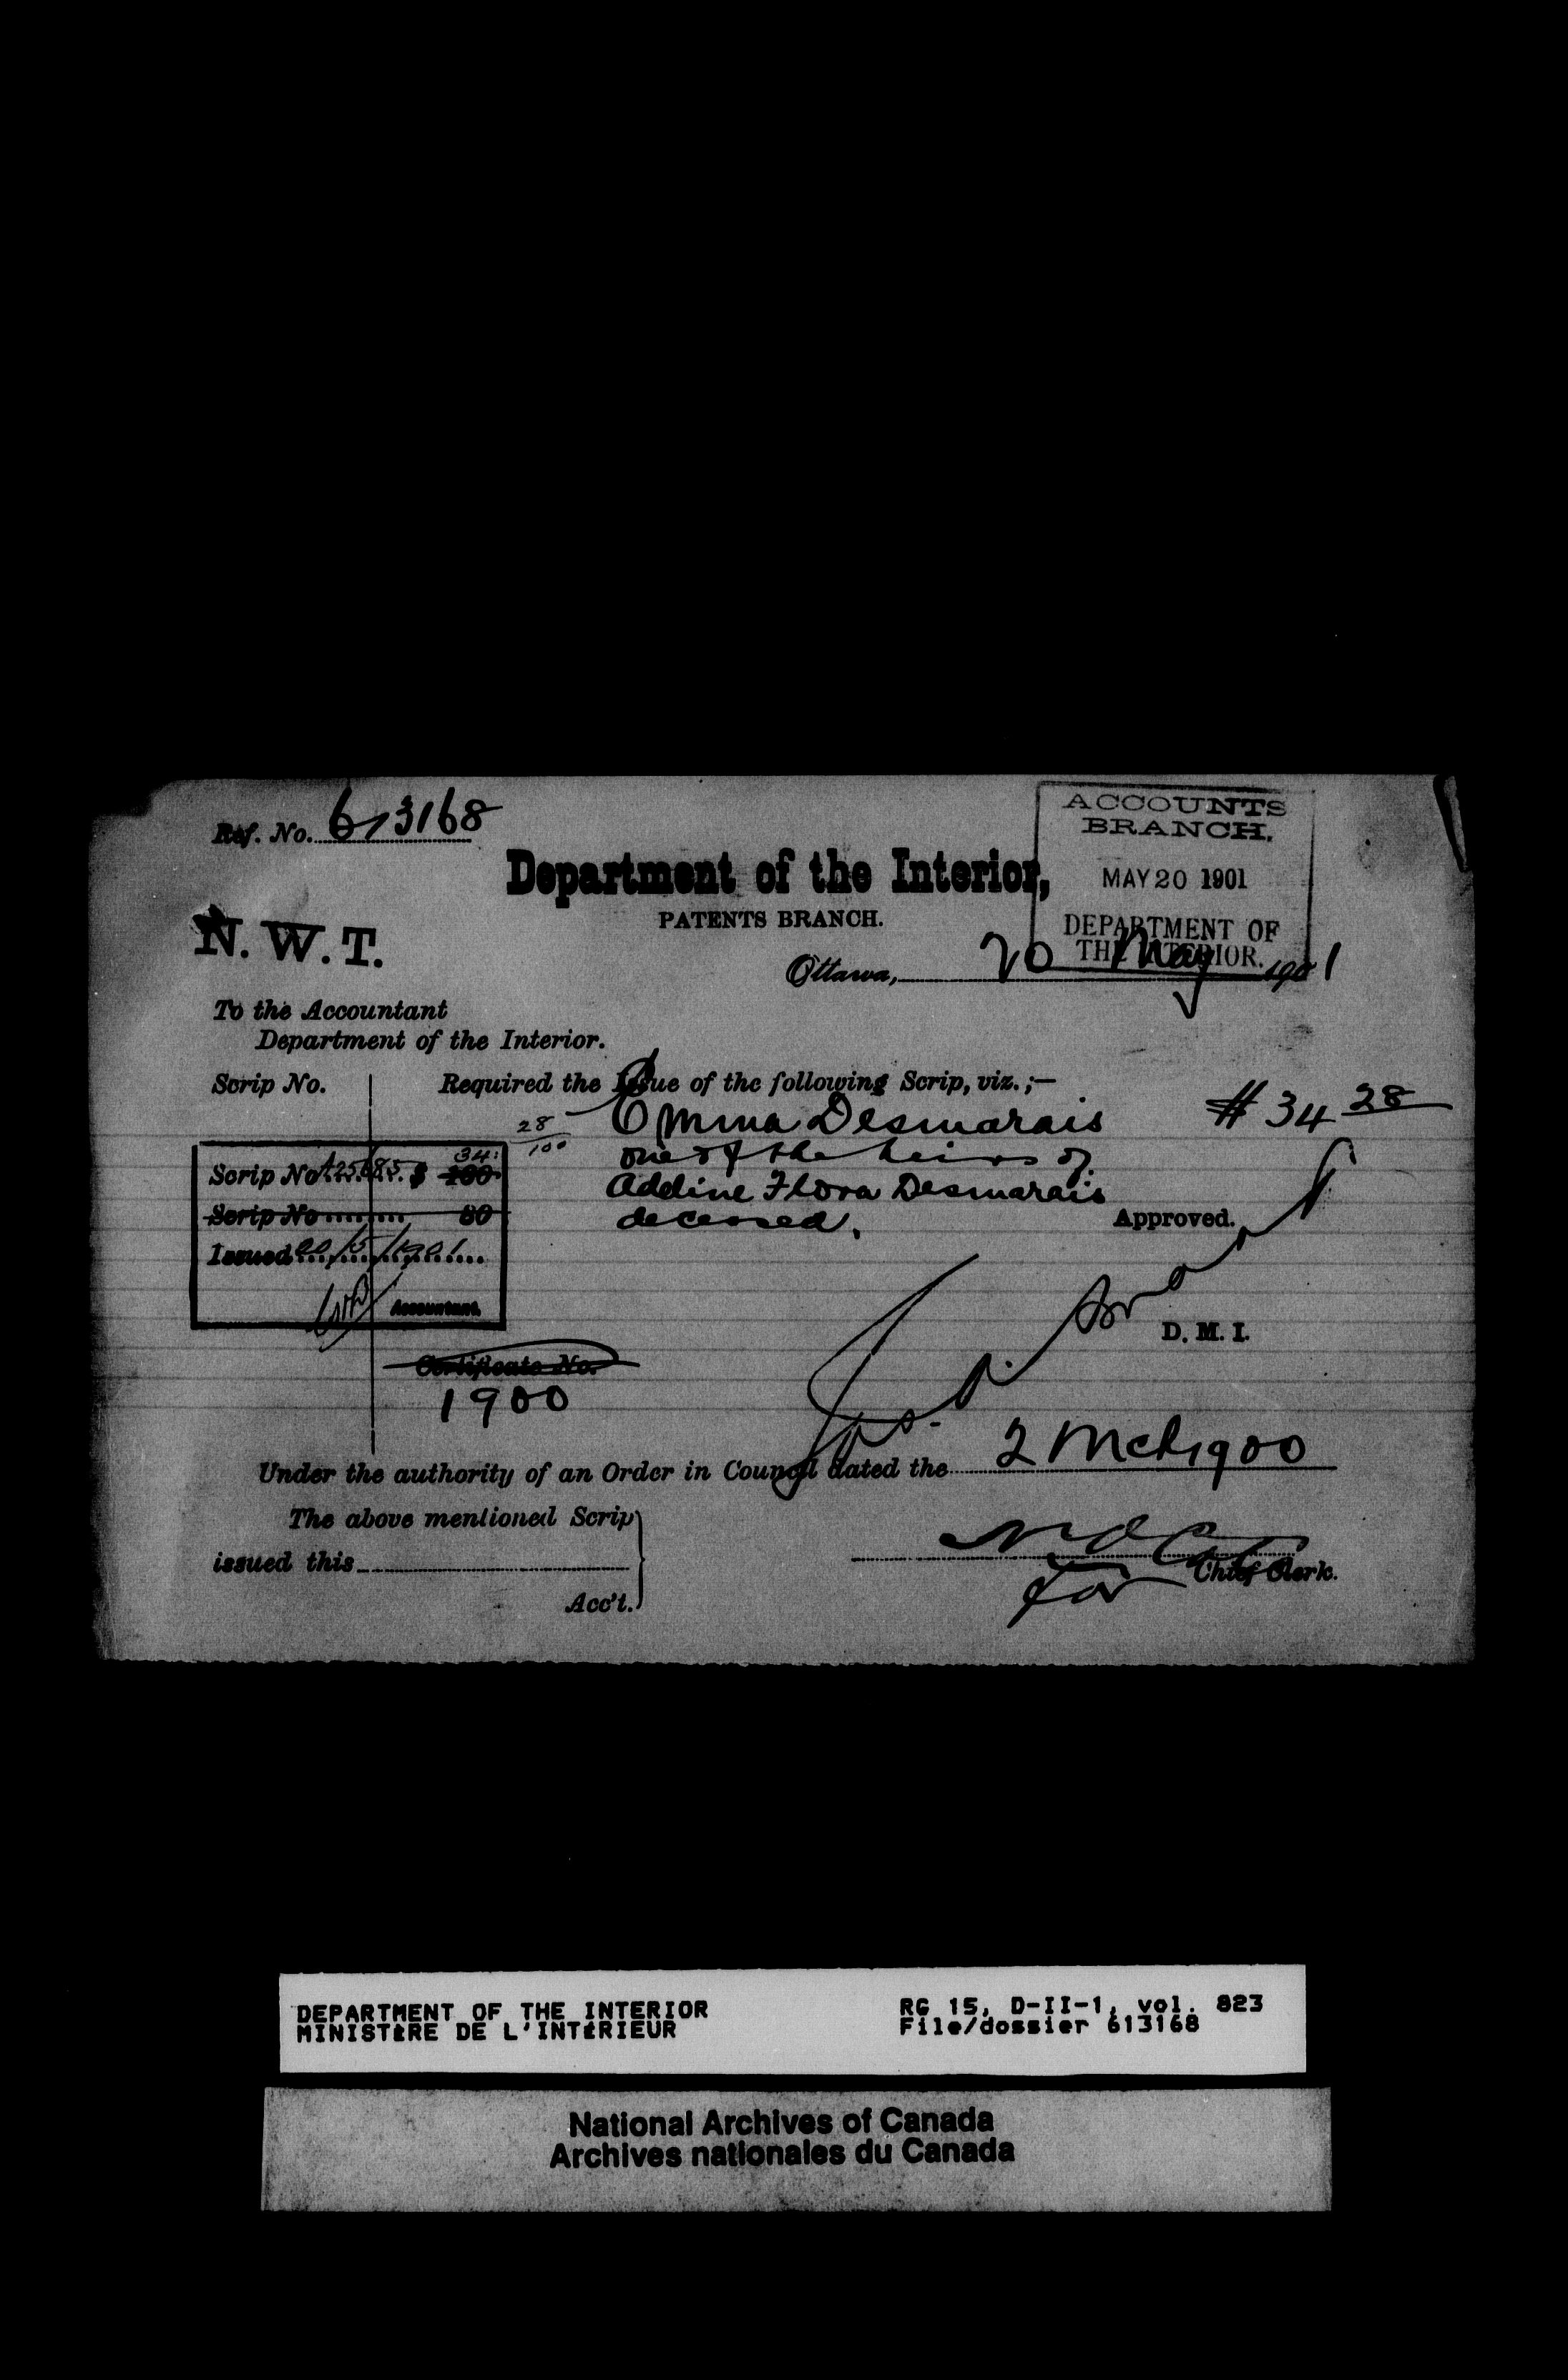 Ref. No. 613168
ACCOUNTS
BRANCH.
MAY 20 1901
DEPARTMENT OF
THE INTERIOR.
Department of the Interior,
PATENTS BRANCH.
N. W. T.
Ottawa, 20 May 1901
To the Accountant
Department of the Interior.
Scrip No.
Required the Issue of the following Scrip, viz.;—
Emma Desmarais # 34 28
one of the heirs of
Adeline Flora Desmarais
deceased.
28/100
34:
Scrip No. A25685 $ 160
Scrip No 80
Issued 20/5/1901
Accountant.
Approved.
D. M. I.
Certificate No.
1900
Under the authority of an Order in Council dated the 2 Mch 1900
The above mentioned Scrip
issued this
Acc't.
for Chief Clerk.
DEPARTMENT OF THE INTERIOR
MINISTÈRE DE L'INTÉRIEUR
RG 15, D-II-1, vol. 823
File/dossier 613168
National Archives of Canada
Archives nationales du Canada